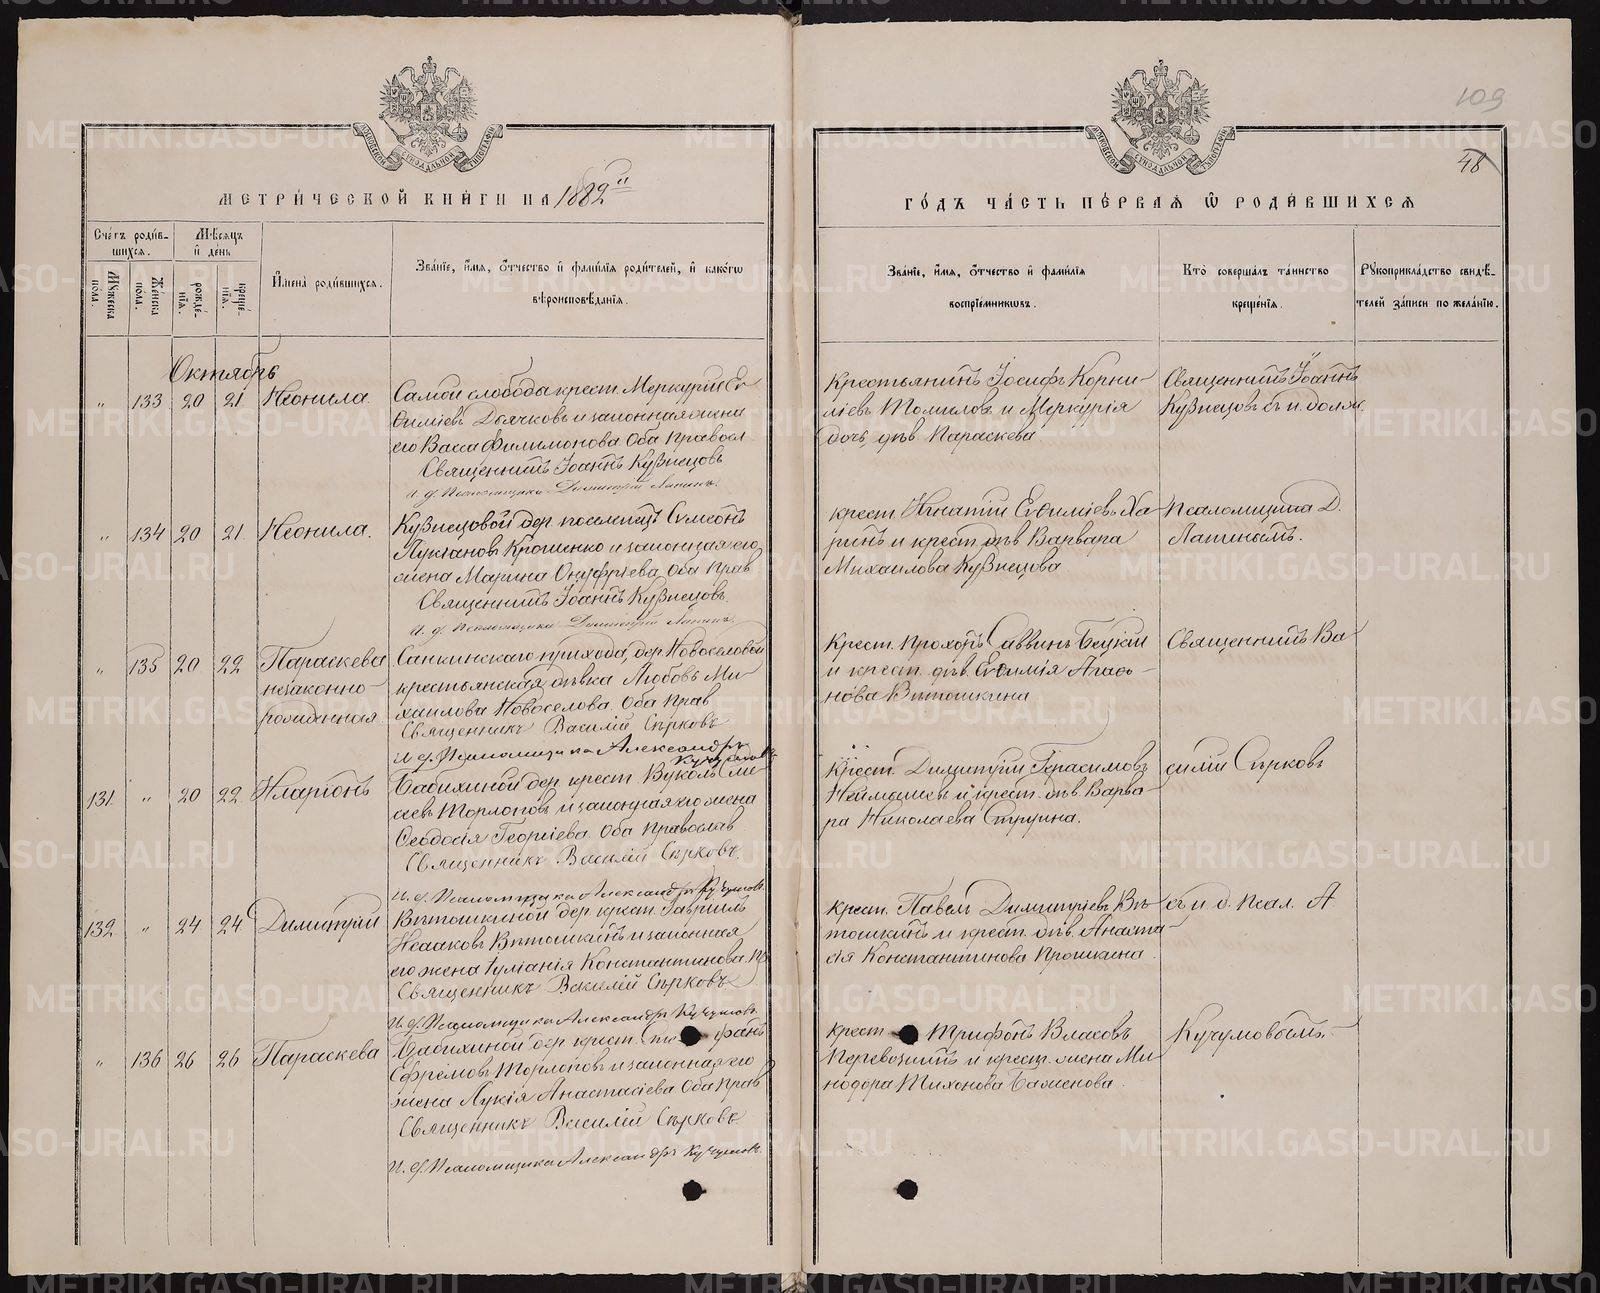 109
48
МЕТРИЧЕСКОЙ КНИГИ НА 1882й
ГОДЪ ЧАСТЬ ПЕРВАЯ Ѿ РОДИВШИХСЯ
Счетъ родив-
шихся.
Мѣсяцъ
и день
Мужеска
пола.
Женска
пола.
рожде-
нїя.
креще-
нїя.
Имена родившихся.
Званїе, имя, отчество и фамилїя родителей, и какогѡ
вѣроисповѣданїя.
Званїе, имя, отчество и фамилїя
воспрїемникѡвъ.
Кто совершалъ таинство
крещенїя.
Рукоприкладство свидѣ-
телей записи по желанїю.
Октябрь
„ 133 20 21 Неонила.
Самой слободы крест. Меркурій Ев
ѳиміевъ Дьячковъ и законная жена
его Васса Филимонова Оба правосл
Священникъ Іоаннъ Кузнецовъ
И. д. Псаломщика Димитрій Лапинъ.
Крестьянинъ Іосифъ Корни-
ліевъ Томиловъ и Меркурія
дочь дѣв. Параскева
Священникъ Іоаннъ
Кузнецовъ съ и. долж.
„ 134 20 21 Неонила.
Кузнецовой дер. поселенецъ Сѵмеонъ
Лукіановъ Крошенко и законная его
жена Марина Онуфріева Оба прав
Священникъ Іоаннъ Кузнецовъ.
И. д. Псаломщика Димитрій Лапинъ.
крест. Игнатій Евѳиміевъ Ха-
ринъ и крест. дѣв Варвара
Михаилова Кузнецова
Псаломщика Д.
Лапинымъ.
„ 135 20 22 Параскева
незаконно-
рожденная
Санкинскаго прихода, дер. Новоселовой
крестьянская дѣвка Любовь Ми-
хаилова Новоселова. Оба Прав
Священникъ Василій Сѣрковъ
И. д. Псаломщика Александръ
Кучумовъ
Крест. Прохоръ Саввинъ
и крест. дѣв. Евѳимія Агаѳо-
нова Вятошкина
Священникъ Ва
131. „ 20 22 Иларіонъ
Бабихиной дер. крест. Вуколъ
Торлоповъ и законная его жена
Ѳеодосія Георгіева. Оба православ
Священникъ Василій Сѣрковъ.
И. д. Псаломщика Александръ Кучумовъ.
Крест. Димитрій Герасимовъ
и крест. дѣв. Варва-
ра Николаева Струина.
силій Сѣрковъ
132 „ 24 24 Димитрій
Вятошкиной дер. крест. Гавріилъ
Исааковъ Вятошкинъ и законная
его жена Іуліанія Константинова. Пр
Священникъ Василій Сѣрковъ
И. д. Псаломщика Александръ Кучумовъ.
крест. Павелъ Димитріевъ Вя-
тошкинъ и крест. дѣв. Анаста-
сія Константинова Прошкина.
съ и. д. псал. А
„ 136 26 26 Параскева
Бабихиной дер. крест. Сте фанъ
Ефремовъ Торлоповъ и законная его
жена Лукія Анастасіева Оба прав
Священникъ Василій Сѣрковъ
И. д. Псаломщика Александръ Кучумовъ.
крест Трифонъ Власовъ
Перевощикъ и крест. жена Ми-
нодора Тихонова Баженова.
Кучумовымъ.